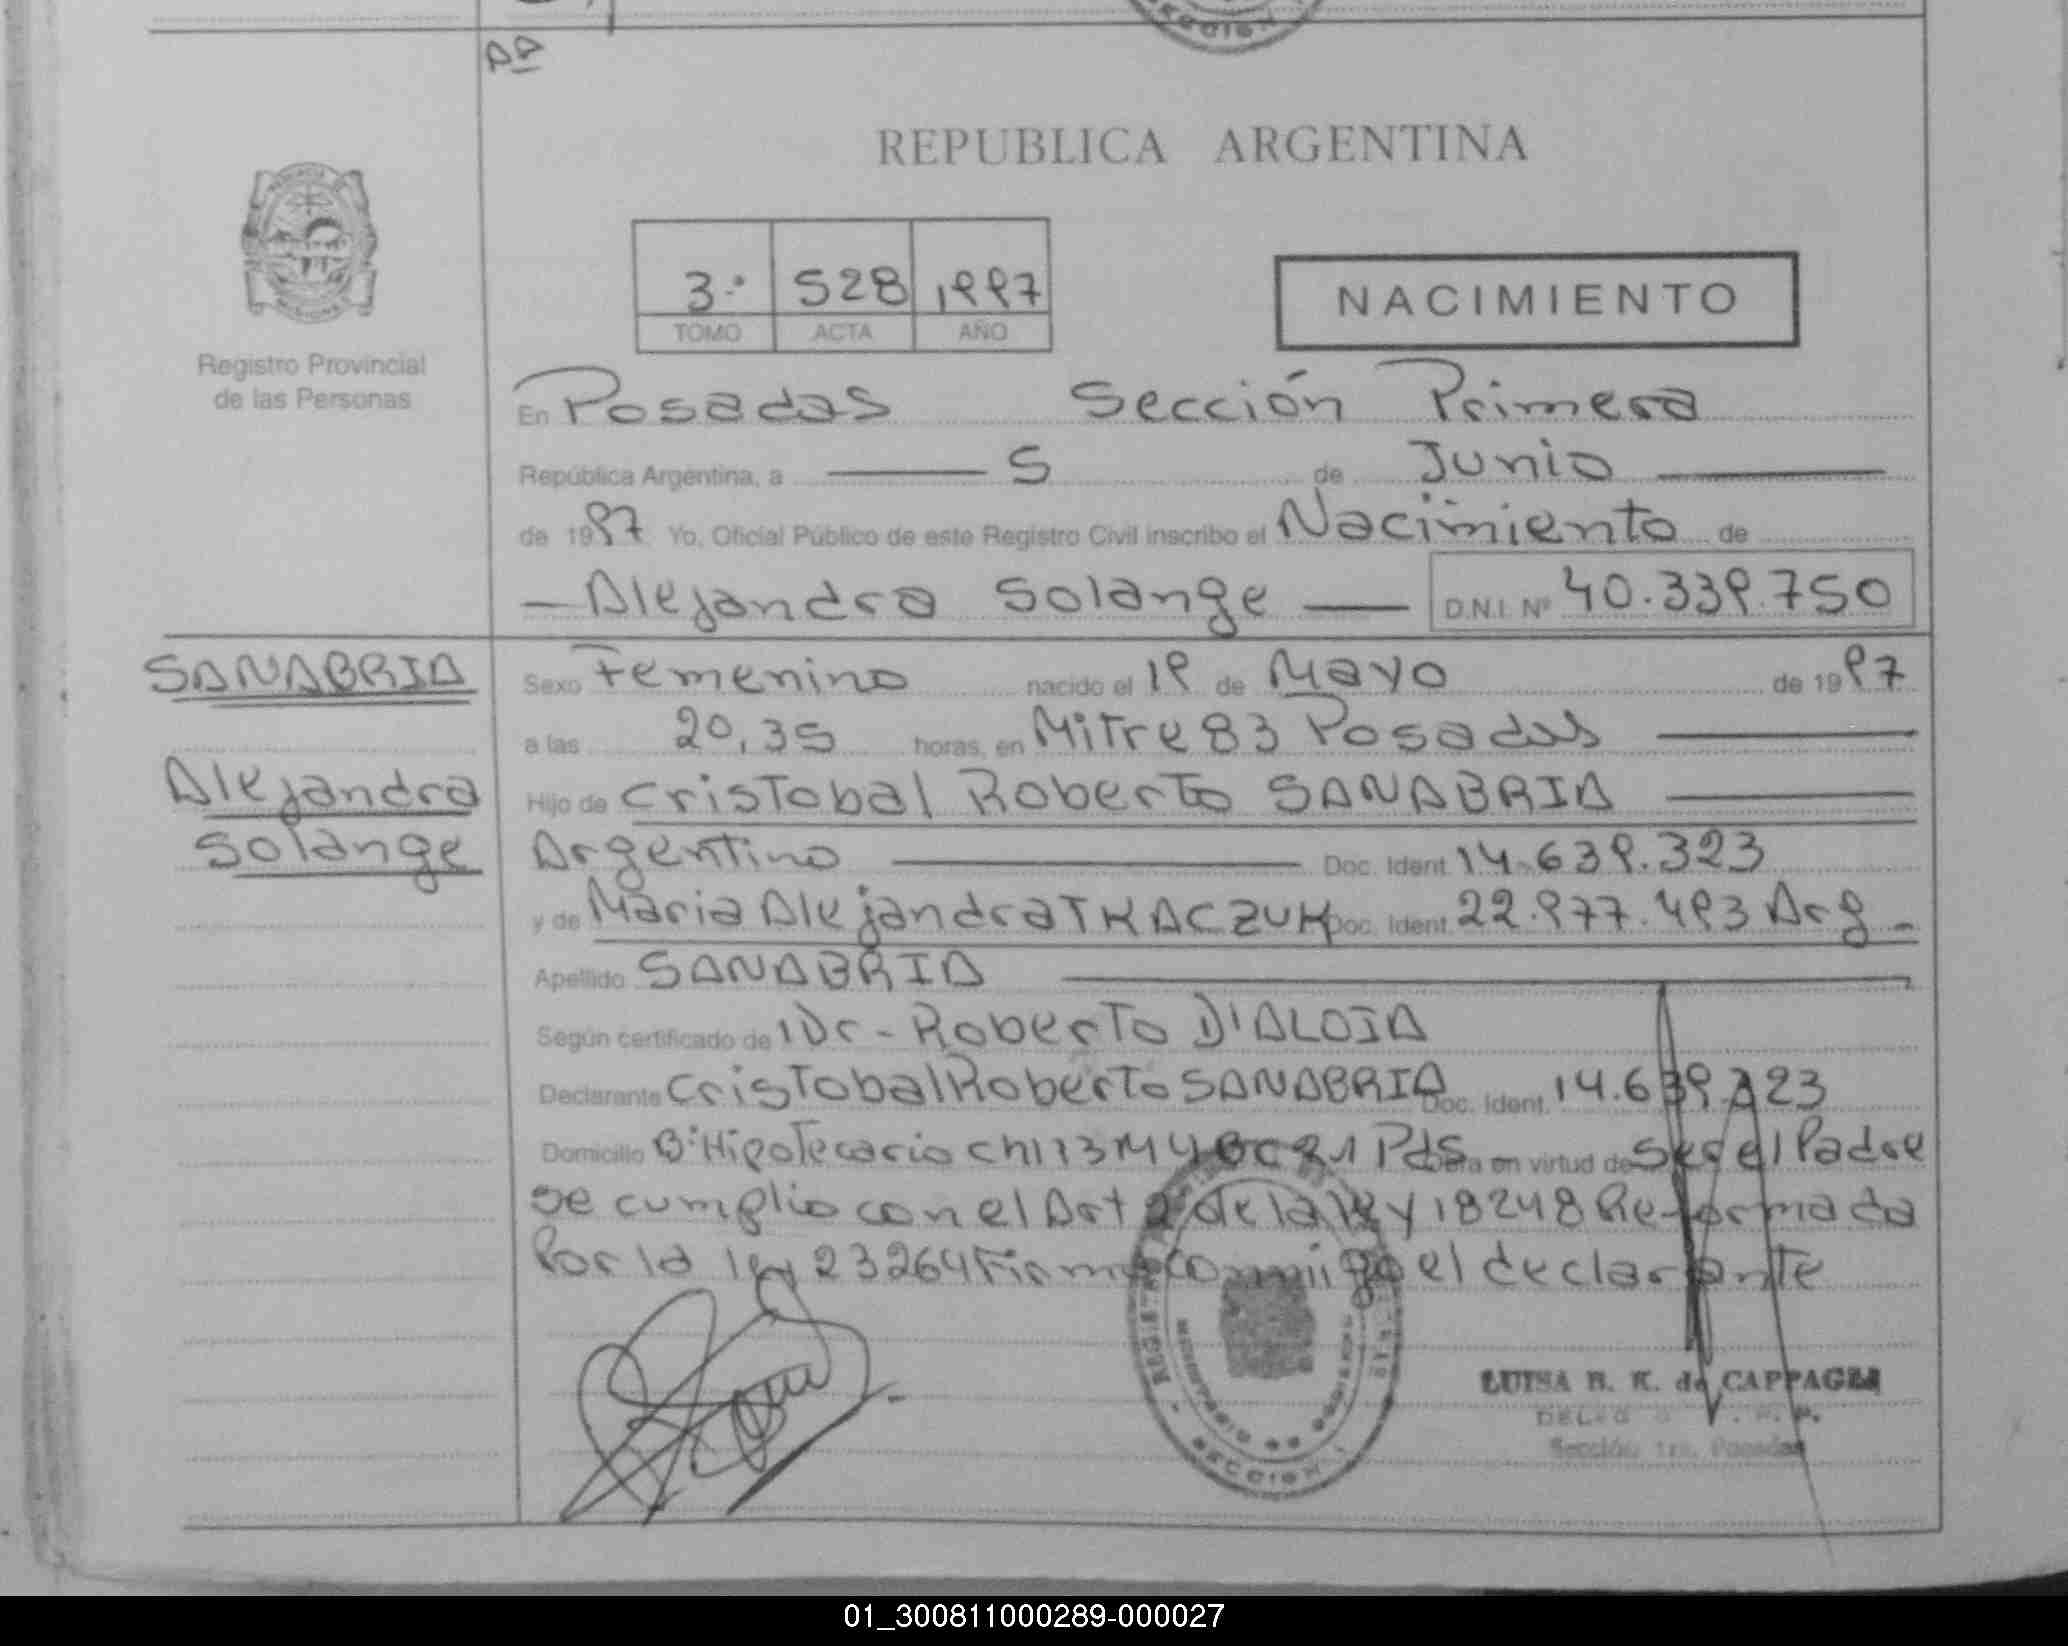 REPUBLICA ARGENTINA
3º 528 1997
TOMO ACTA AÑO
NACIMIENTO
Registro Provincial
de las Personas
En Posadas Sección Primera
República Argentina, a 5 de Junio
de 1997 Yo, Oficial Público de este Registro Civil inscribo el Nacimiento de
Alejandra Solange D.N.I. Nº 40.339.750
SANABRIA
Alejandra
Solange
Sexo Femenino nacido el 19 de Mayo de 1997
a las 20,35 horas, en Mitre 83 Posadas
Hijo de Cristobal Roberto SANABRIA
Argentino Doc. Ident. 14.639.323
y de Maria Alejandra TKACZUK Doc. Ident. 22.977.493 Arg
Apellido SANABRIA
Según certificado de Dr - Roberto D'ALOIA
Declarante Cristobal Roberto SANABRIA Doc. Ident. 14.639.323
Domicilio Bº Hipotecario Ch 113 M 4 Pds en virtud de Ser el Padre
se cumplio con el Art 2 de la ley 18248 Reformada
Por la ley 23264 Firma conmigo el declarante
LUISA B. K. de CAPPAGLI
Sección 1ra. Posadas
SECCION
01_300811000289-000027